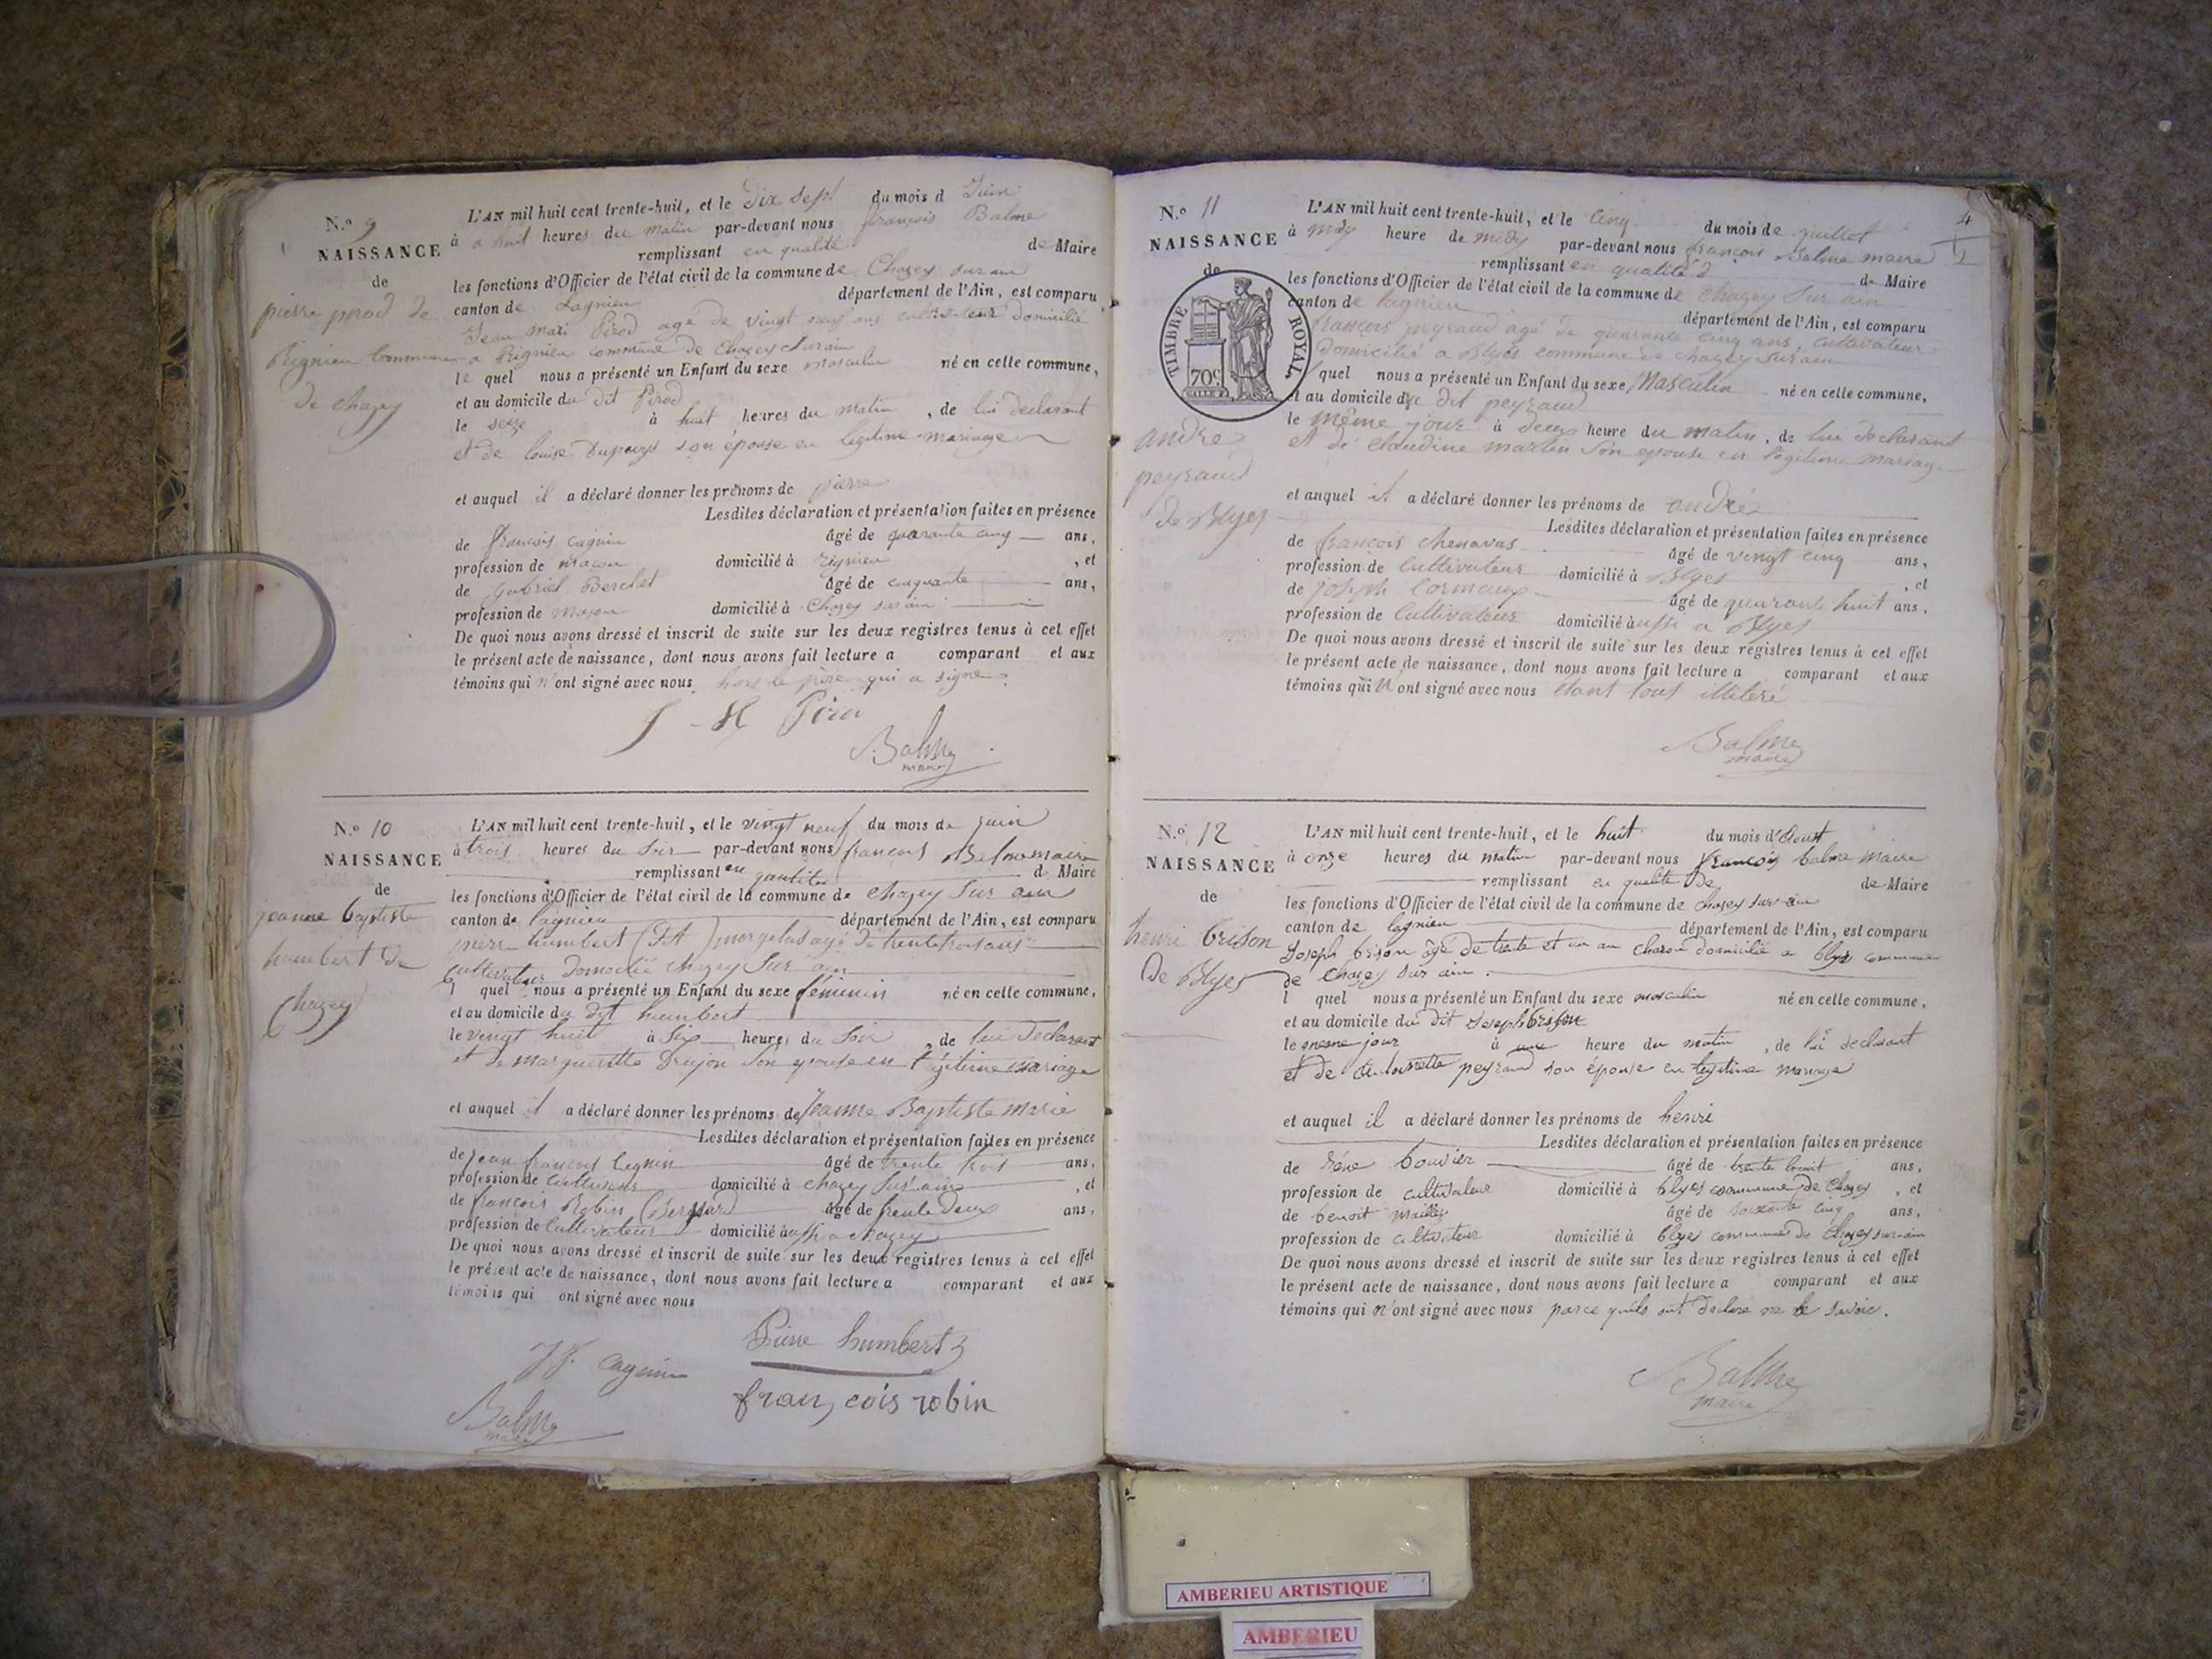 N.o 9
NAISSANCE
de
pierre pirod de
Rignieu Commune
de chazey
L'AN mil huit cent trente-huit, et le Dix sept du mois d Juin
à a huit heures du matin par-devant nous françois Balme
remplissant en qualité de Maire
les fonctions d'Officier de l'état civil de la commune de Chazey sur ain
canton de Lagnieu département de l'Ain, est comparu
Jean mari Pirod agé de vingt neuf ans cultivateur domicilié
a Rignieu commune de Chazey Surain
le quel nous a présenté un Enfant du sexe masculin né en celle commune,
et au domicile du dit Pirod
le seize à huit heures du matin, de lui declarant
et de louise Dupuys son épouse en légitime mariage
et auquel il a déclaré donner les prénoms de pierre
Lesdites déclaration et présentation faites en présence
de françois Cagnin âgé de quarante cinq ans,
profession de maçon domicilié à Rignieu, et
de gabriel Berchet âgé de cinquante ans,
profession de domicilié à Chazey sur ain
De quoi nous avons dressé et inscrit de suite sur les deux registres tenus à cet effet
le présent acte de naissance, dont nous avons fait lecture a comparant et aux
témoins qui n'ont signé avec nous hors le père qui a signé.
J - M Piro
Balme
maire
N.o 10
NAISSANCE
de
jeanne baptiste
humbert de
Chazey
L'AN mil huit cent trente-huit, et le vingt neuf du mois de juin
à trois heures du soir par-devant nous francois Balme maire
remplissant en qautité de Maire
les fonctions d'Officier de l'état civil de la commune de chazey Sur ain
canton de lagnieu département de l'Ain, est comparu
pierre humbert agé de trente trois ans
Cultivateur domicilié chazey Sur ain
l quel nous a présenté un Enfant du sexe féminin né en celle commune,
et au domicile du dit humbert
le vingt huit à Six heures du Soir, de lui declarant
et de margueritte Drujon Son epouse en légitime mariage
et auquel il a déclaré donner les prénoms de Jeanne Baptiste Marie
Lesdites déclaration et présentation faites en présence
de jean francois Cagnin âgé de trente trois ans,
profession de cultivateur domicilié à chazey Sur ain, et
de françois Robin (Bernard) âgé de trente Deux ans,
profession de Cultivateur domicilié aussi a chazey
De quoi nous avons dressé et inscrit de suite sur les deux registres tenus à cet effet
le présent acte de naissance, dont nous avons fait lecture a comparant et aux
témoins qui ont signé avec nous
Pierre humbert
J f. Cagnin
françois robin
Balme
maire
4
N.o 11
NAISSANCE
de
TIMBRE ROYAL
70c
andre
peyraud
de Blyes
L'AN mil huit cent trente-huit, et le Cinq du mois de juillet
à midy heure de midy par-devant nous françois Balme maire
remplissant en qualité d de Maire
les fonctions d'Officier de l'état civil de la commune de chazey Sur ain
canton de lagnieu département de l'Ain, est comparu
françois peyraud âgé de quarante cinq ans, cultivateur
domicilié a Blyes commune de chazey Sur ain
quel nous a présenté un Enfant du sexe Masculin né en celle commune,
et au domicile du dit peyraud
le même jour à deux heure du matin, de lui declarant
et de Claudine martin Son epouse en légitime mariage
et auquel il a déclaré donner les prénoms de andré
Lesdites déclaration et présentation faites en présence
de françois chenavas âgé de vingt cinq ans,
profession de Cultivateur domicilié à Blyes, et
de joseph Cormaux âgé de quarante huit ans,
profession de Cultivateur domicilié aussi a Blyes
De quoi nous avons dressé et inscrit de suite sur les deux registres tenus à cet effet
le présent acte de naissance, dont nous avons fait lecture a comparant et aux
témoins qui n'ont signé avec nous étant tous illiteré
Balme
maire
N.o 12
NAISSANCE
de
henri brison
De Blyes
L'AN mil huit cent trente-huit, et le huit du mois d'Aoust
à onze heures du matin par-devant nous françois balme maire
remplissant en qualité de de Maire
les fonctions d'Officier de l'état civil de la commune de chazey sur ain
canton de lagnieu département de l'Ain, est comparu
Joseph brison âgé de trente et un an charon domicilié a blyes commune
de Chazey sur ain.
l quel nous a présenté un Enfant du sexe masculin né en celle commune,
et au domicile du dit Joseph brison
le meme jour à une heure du matin, de lui declarant
et de peyraud son épouse en legitime mariage
et auquel il a déclaré donner les prénoms de henri
Lesdites déclaration et présentation faites en présence
de Réne bouvier âgé de trente huit ans,
profession de cultivateur domicilié à blyes commune de Chazey, et
de benoit âgé de soixante cinq ans,
profession de cultivateur domicilié à blyes commune de Chazey sur ain
De quoi nous avons dressé et inscrit de suite sur les deux registres tenus à cet effet
le présent acte de naissance, dont nous avons fait lecture a comparant et aux
témoins qui n'ont signé avec nous parce qu'ils ont declare ne le savoir.
Balme
maire
AMBERIEU ARTISTIQUE
AMBERIEU